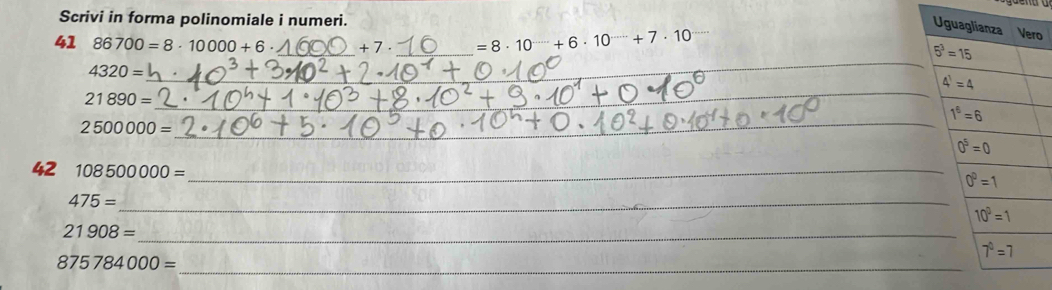 Scrivi in forma polinomiale i numeri.
41 86 700 = 8 · 10 000 + 6 · 1000 + 7 · 10 = 8 · 10^..... + 6 · 10^..... + 7 · 10^.....
4320 = 4 · 10³ + 3 · 10² + 2 · 10¹ + 0 · 10⁰
21 890 = 2 · 10⁴ + 1 · 10³ + 8 · 10² + 9 · 10¹ + 0 · 10⁰
2 500 000 = 2 · 10⁶ + 5 · 10⁵ + 0 · 10⁴ + 0 · 10² + 0 · 10¹ + 0 · 10⁰
42 108 500 000 =
475 =
21 908 =
875 784 000 =
Uguaglianza Vero
5³ = 15
4¹ = 4
1⁶ = 6
0⁵ = 0
0⁰ = 1
10⁰ = 1
7⁰ = 7